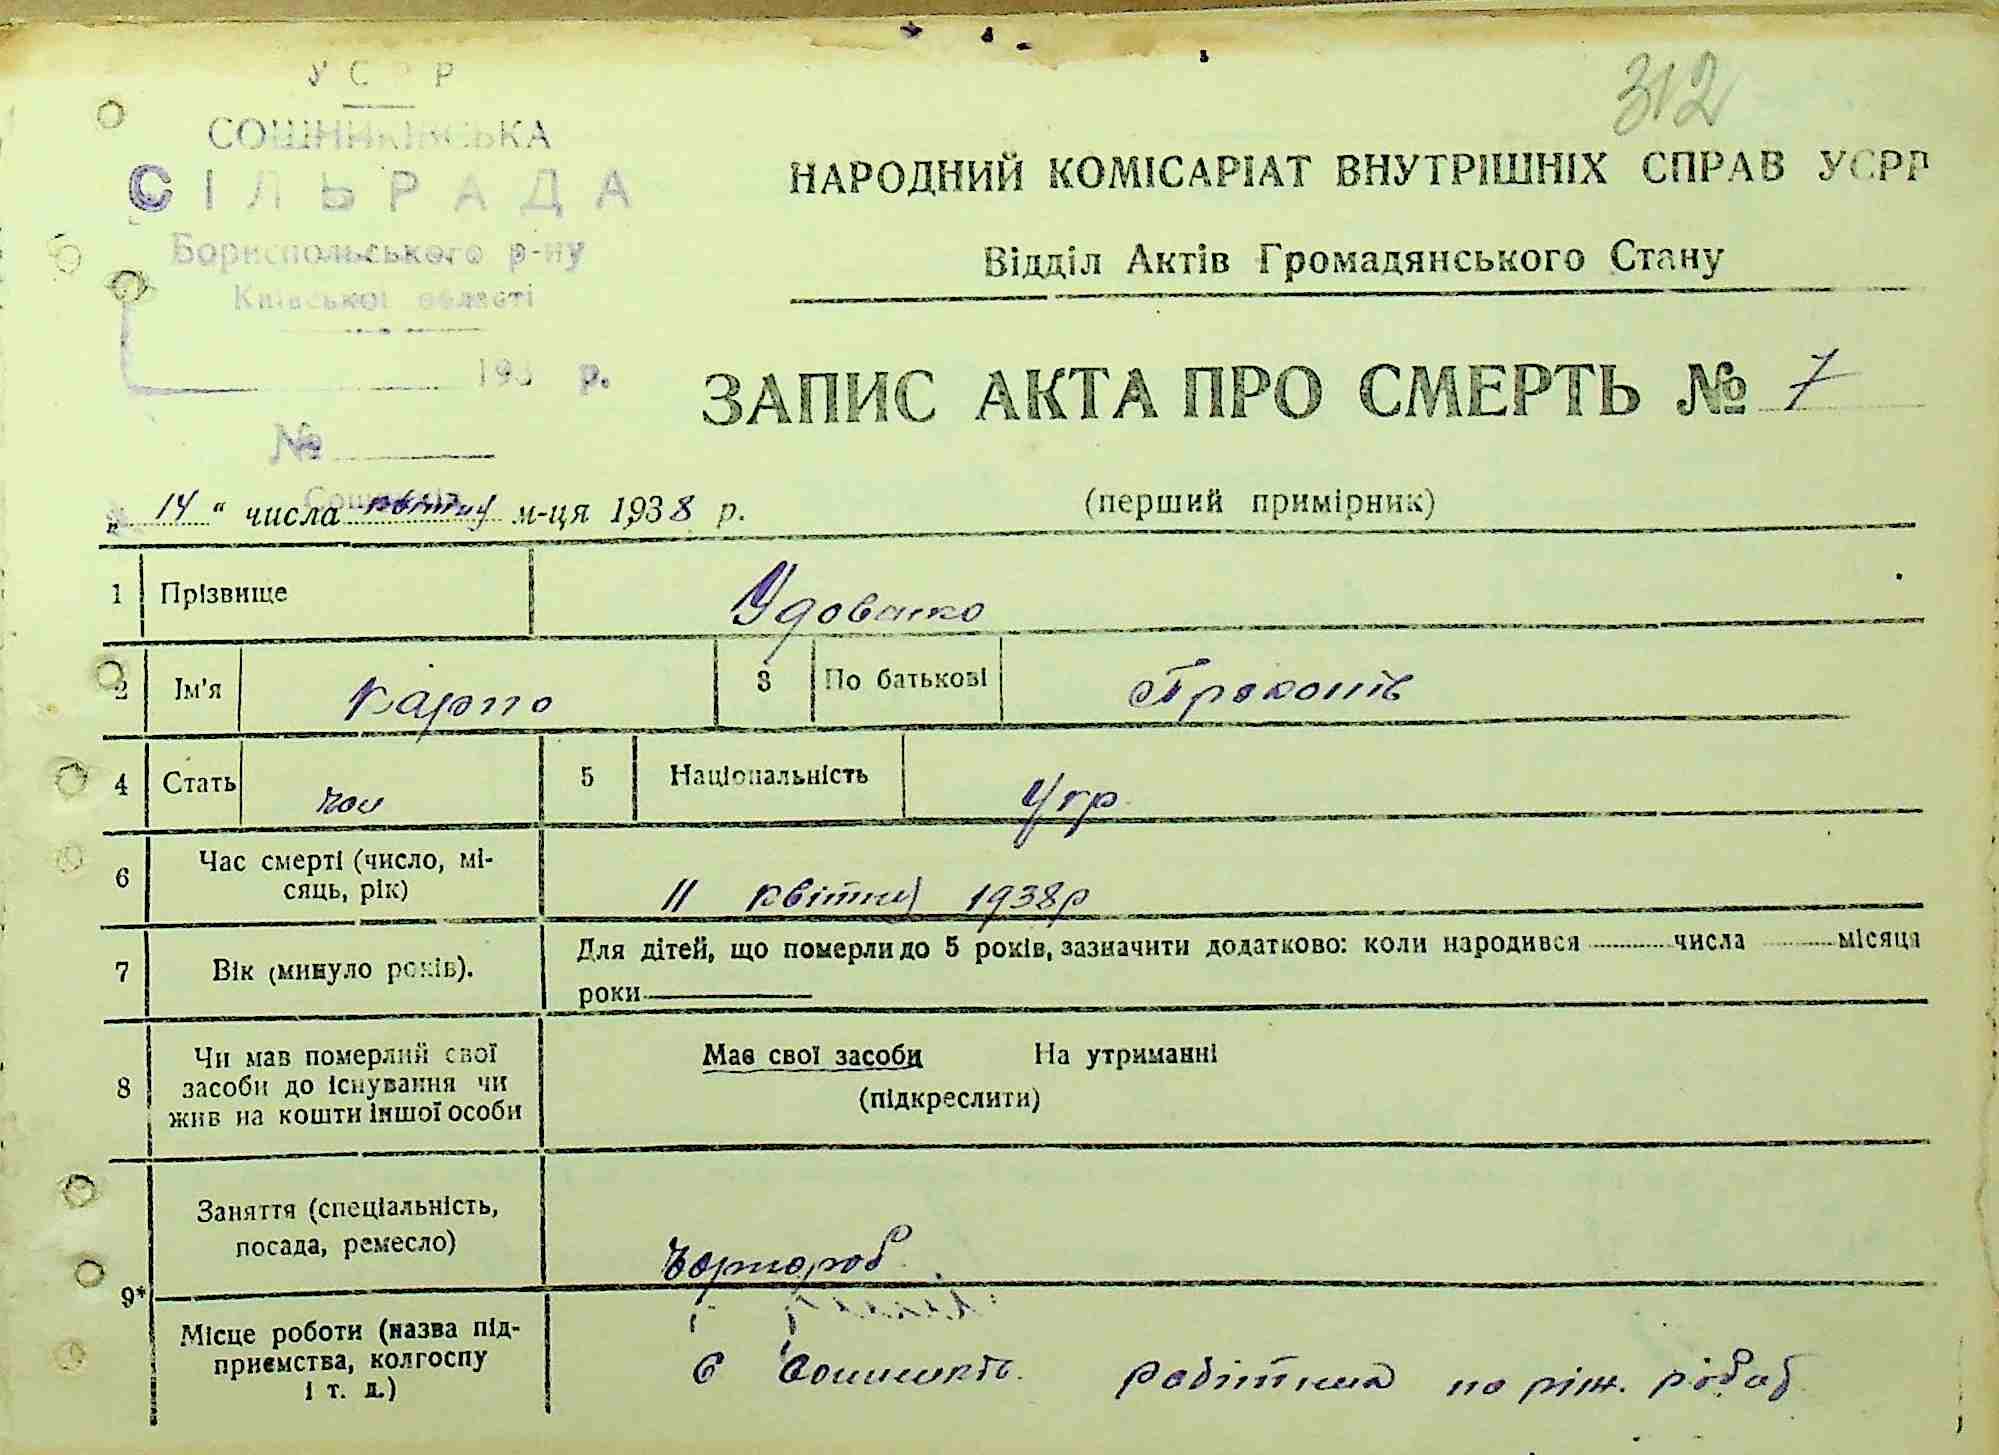 312
УСРР
СОШНИКІВСЬКА
СІЛЬРАДА
Бориспольського р-ну
Київської області
193 р.
№
НАРОДНИЙ КОМІСАРІАТ ВНУТРІШНІХ СПРАВ УСРР
Відділ Актів Громадянського Стану
ЗАПИС АКТА ПРО СМЕРТЬ № 7
„14“ числа квітня м-ця 1938 р.
(перший примірник)
1 Прізвище Удовенко
2 Ім'я Карпо 3 По батькові Прокопів
4 Стать чол 5 Національність Укр
6 Час смерті (число, мі-
сяць, рік)
11 квітня 1938р
7 Вік (минуло років).
Для дітей, що померли до 5 років, зазначити додатково: коли народився числа місяця
роки
8 Чи мав померлий свої
засоби до існування чи
жив на кошти іншої особи
Має свої засоби На утриманні
(підкреслити)
9*
Заняття (спеціальність,
посада, ремесло)
Чорнороб
Місце роботи (назва під-
приємства, колгоспу
і т. д.)
с Сошників. робітник по різн. робот